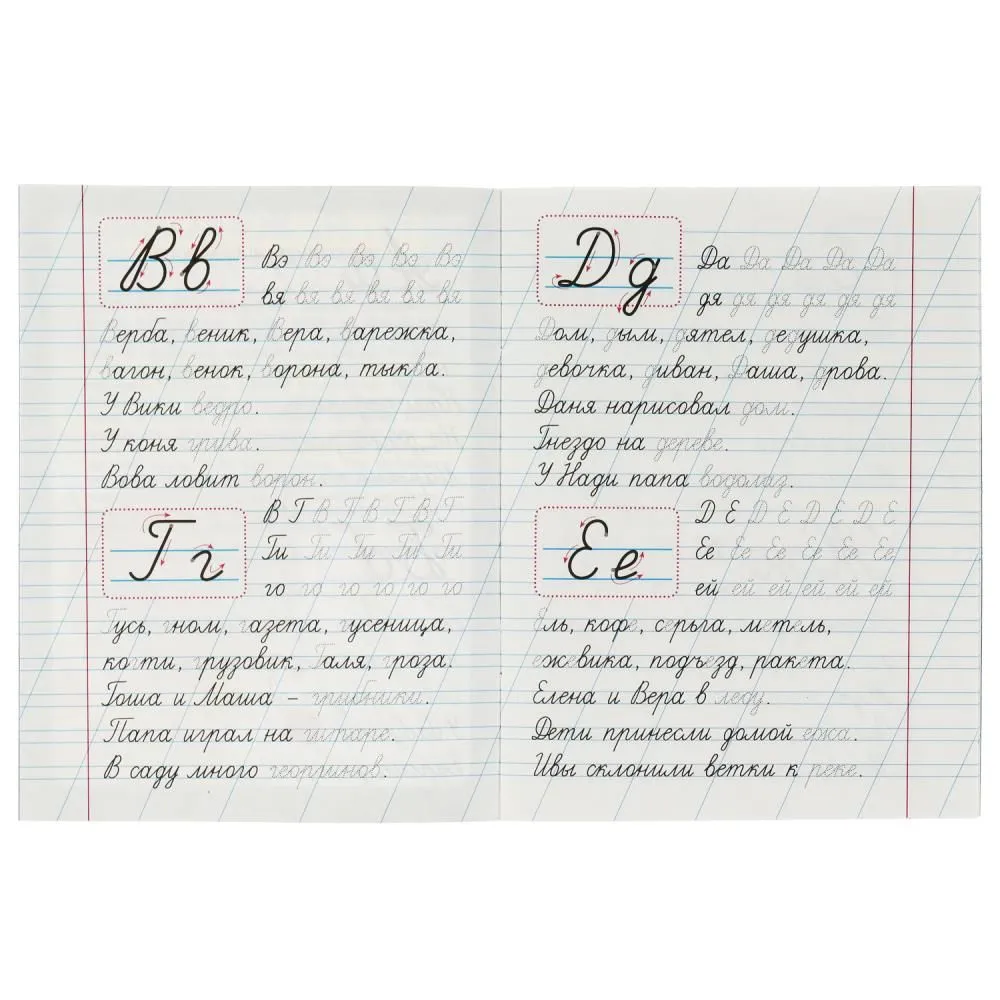 Вв
Вэ Вэ Вэ Вэ Вэ
вя вя вя вя вя вя
Верба, веник, Вера, варежка,
вагон, венок, ворона, тыква.
У Вики ведро.
У коня грива.
Вова ловит ворон.
Гг
В Г В Г В Г В Г
Ги Ги Ги Ги Ги
го го го го го го
Гусь, гном, газета, гусеница,
когти, грузовик, Галя, гроза.
Гоша и Маша – грибники.
Папа играл на гитаре.
В саду много георгинов.
Дд
Да Да Да Да Да
дя дя дя дя дя дя
Дом, дым, дятел, дедушка,
девочка, диван, Даша, дрова.
Даня нарисовал дом.
Гнездо на дереве.
У Нади папа водолаз.
Ее
Д Е Д Е Д Е Д Е
Ее Ее Ее Ее Ее Ее
ей ей ей ей ей ей
Ель, кофе, серьга, метель,
ежевика, подъезд, ракета.
Елена и Вера в лесу.
Дети принесли домой ежа.
Ивы склонили ветки к реке.